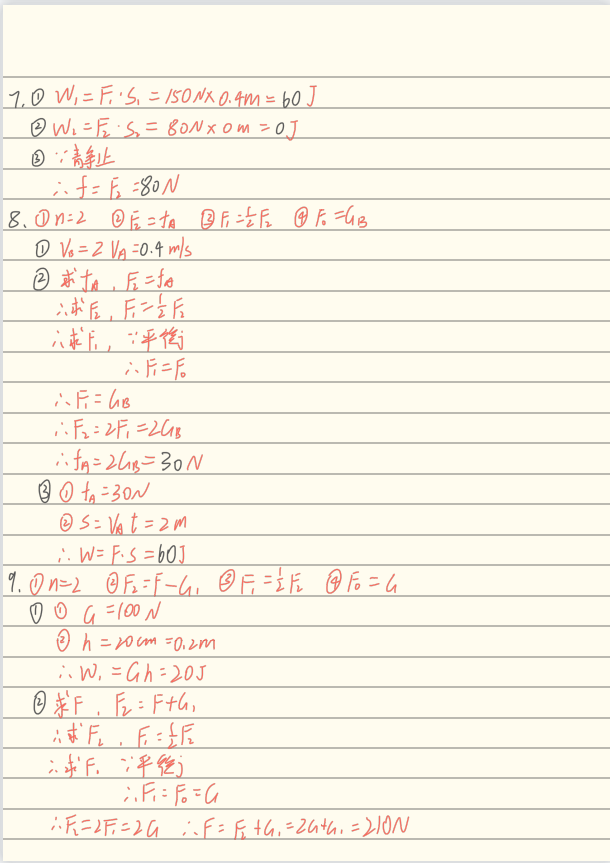 7. ① W₁ = F₁·S₁ = 150N×0.4m = 60J
② W₂ = F₂·S₂ = 80N×0m = 0J
③ ∵静止
∴f = F₂ = 80N
8. ①n=2 ②F₂=fA ③F₁=½F₂ ④F₀=GB
① VB = 2VA = 0.4m/s
② 求fA, F₂=fA
∴求F₂, F₁=½F₂
∴求F₁, ∵平衡
∴F₁=F₀
∴F₁=GB
∴F₂=2F₁=2GB
∴fA=2GB=30N
③ ① fA=30N
② S=VAt=2m
∴W=F·S=60J
9. ①n=2 ②F₂=F-G₁ ③F₁=½F₂ ④F₀=G
① ① G=100N
② h=20cm=0.2m
∴W₁=Gh=20J
② 求F, F₂=F+G₁
∴求F₂, F₁=½F₂
∴求F₁ ∵平衡
∴F₁=F₀=G
∴F₂=2F₁=2G ∴F=F₂+G₁=2G+G₁=210N